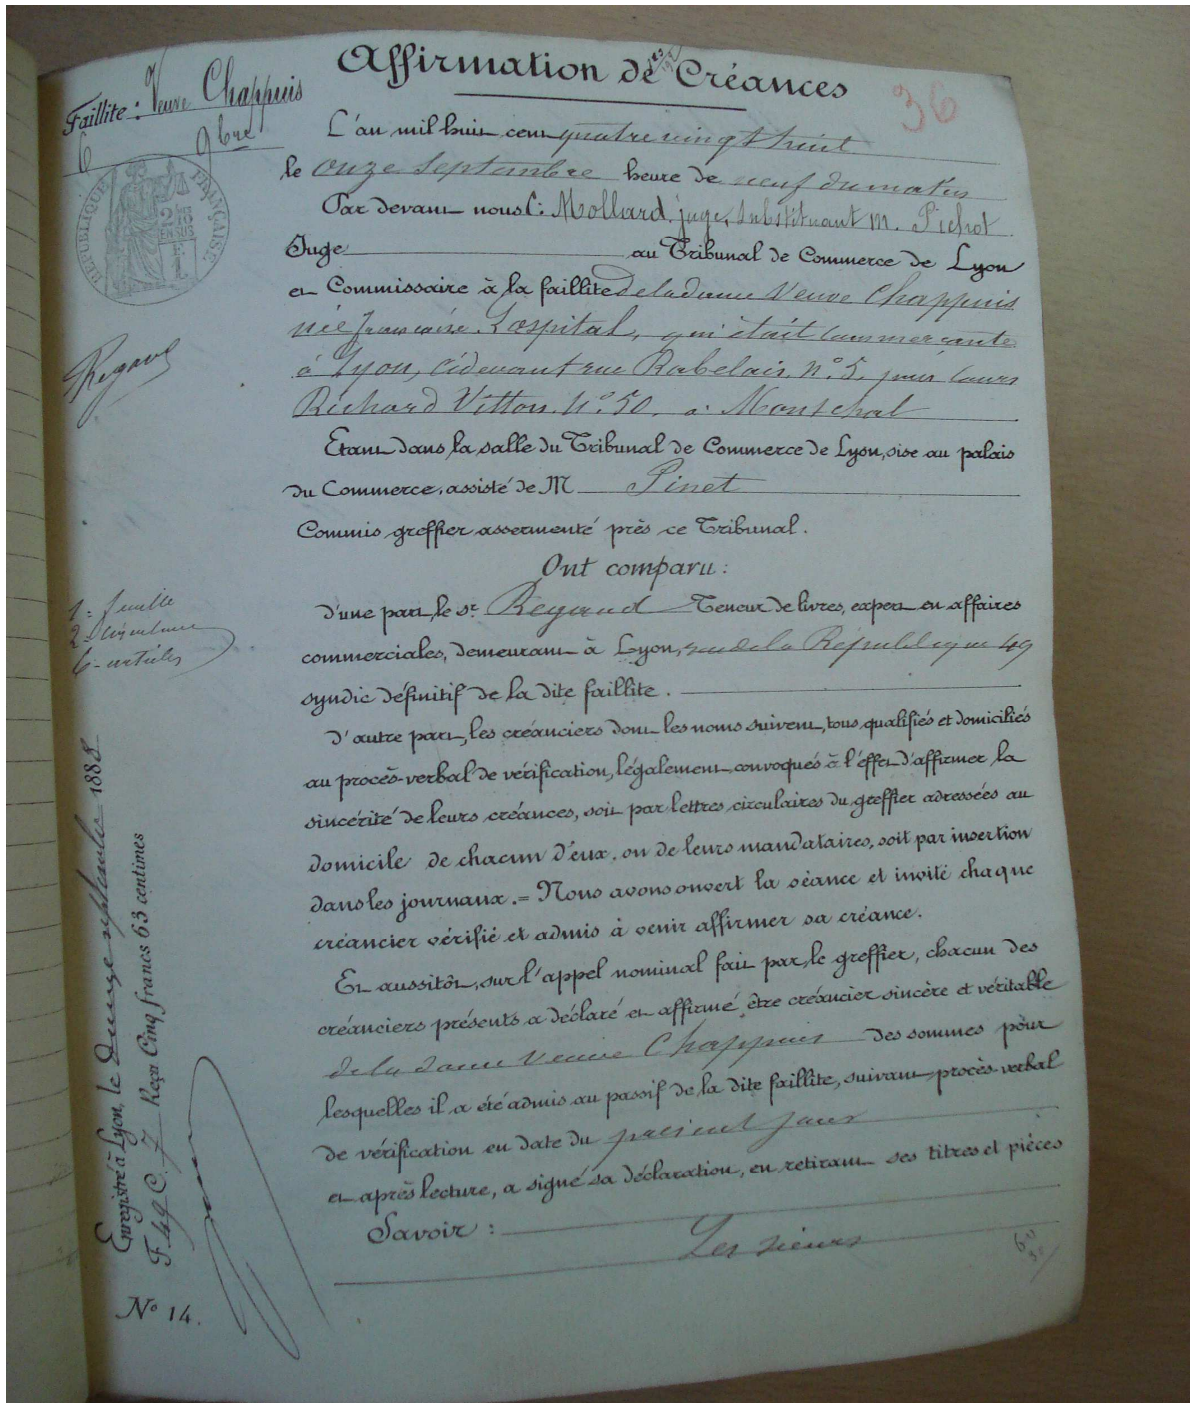 Affirmation de Créances
36
Faillite: Veuve Chappuis
6 9bre
RÉPUBLIQUE FRANÇAISE
L'an mil huit cent quatre vingt huit
le onze Septembre heure de neuf du matin
Par devant nous C: Mollard, juge, Substituant M. Pichot
Juge au Tribunal de Commerce de Lyon
et Commissaire à la faillite de la dame Veuve Chappuis
née Françoise Lospital, qui était commerçante
à Lyon, cidevant rue Rabelais, n° 5, puis Cours
Richard Vitton, N° 50, à Montchat
Regaud
Etant dans la salle du Tribunal de Commerce de Lyon, sise au palais
du Commerce, assisté de M Pinet
Commis greffier assermenté près ce Tribunal.
Ont comparu:
d'une part, le Sr. Regaud Teneur de livres, expert en affaires
commerciales, demeurant à Lyon, rue de la République 49
syndic définitif de la dite faillite.
1 - feuille
2
6 - articles
d'autre part, les créanciers dont les noms suivent, tous qualifiés et domiciliés
au procès-verbal de vérification, légalement convoqués à l'éffet d'affirmer la
sincérité de leurs créances, soit par lettres circulaires du greffier adressées au
domicile de chacun d'eux, ou de leurs mandataires, soit par insertion
dans les journaux. = Nous avons ouvert la séance et invité chaque
créancier vérifié et admis à venir affirmer sa créance.
Et aussitôt, sur l'appel nominal fait par le greffier, chacun des
créanciers présents a déclaré et affirmé être créancier sincère et véritable
de la dame Veuve Chappuis des sommes pour
lesquelles il a été admis au passif de la dite faillite, suivant procès-verbal
de vérification en date du présent jour
et après lecture, a signé sa déclaration, en retirant ses titres et pièces
Savoir:
Les sieurs
Enregistré à Lyon, le Douze septembre 1888
F. 49 C. 7 Reçu Cinq francs 63 centimes
N° 14.